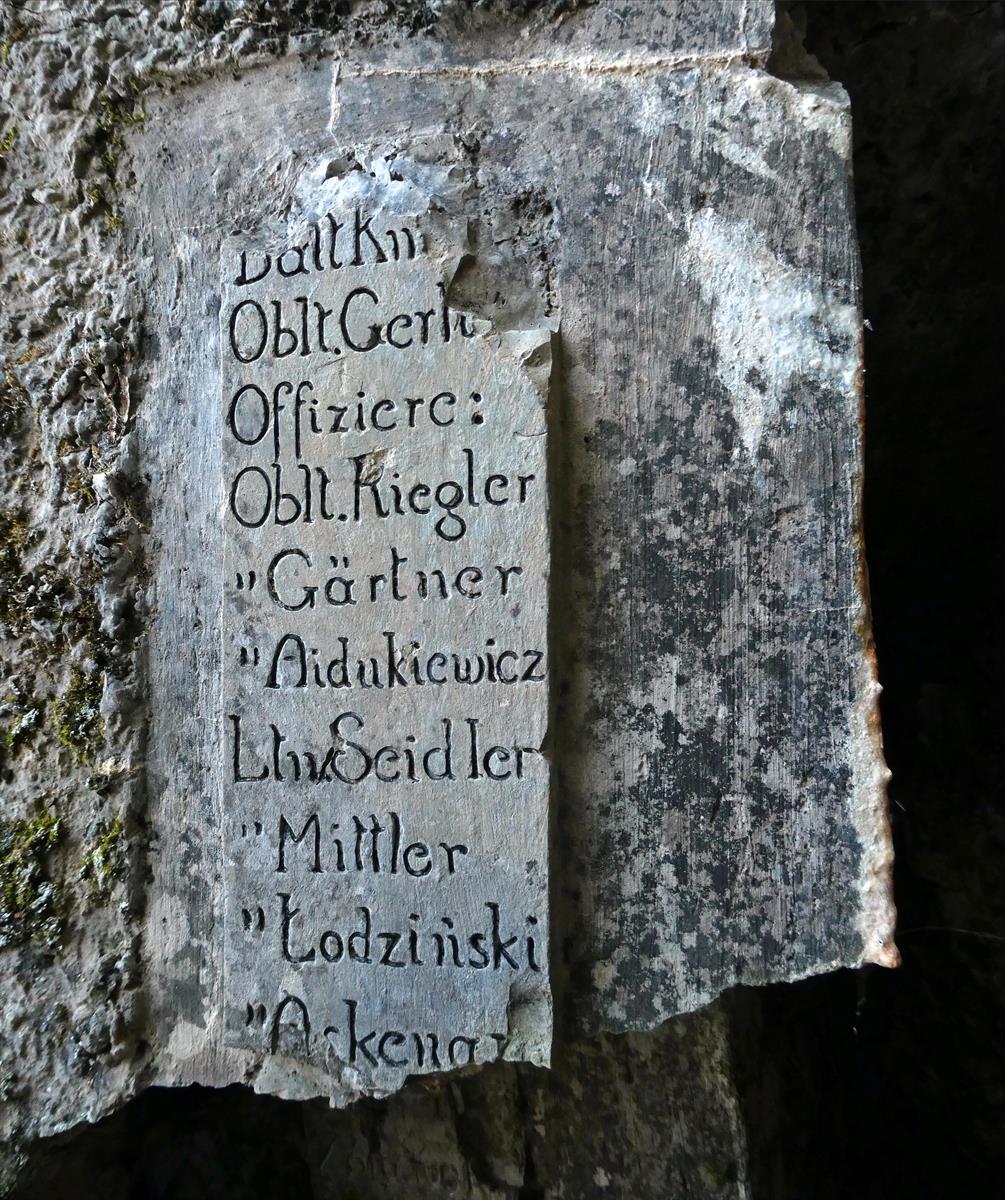 Oblt. Gerh
Offiziere:
Oblt. Riegler
" Gärtner
" Aidukiewicz
Ltn. Seidler
" Mittler
" Łodziński
" Askena